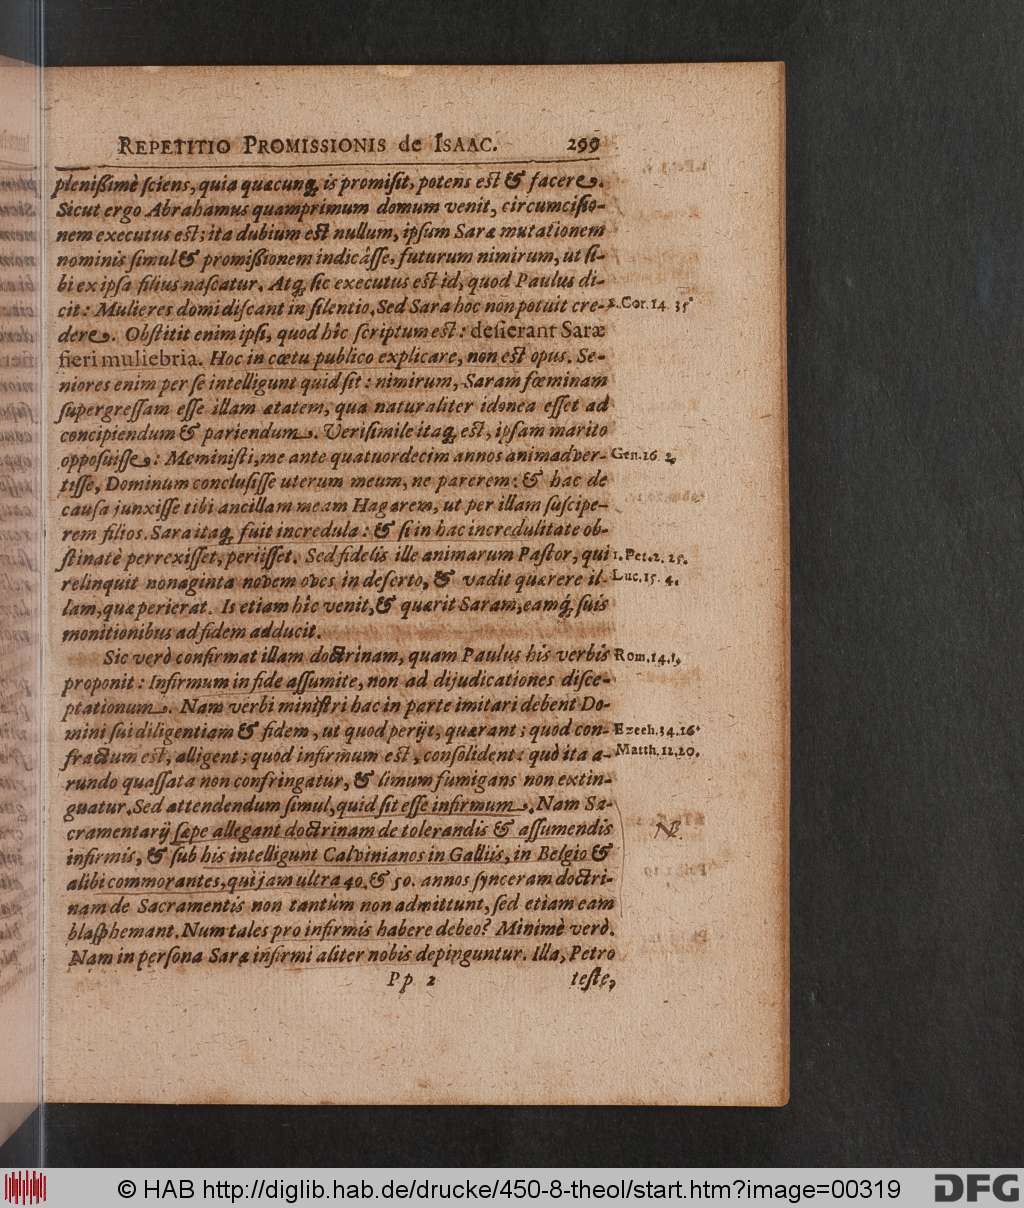 REPETITIO PROMISSIONIS de ISAAC. 299
pleniſſimè ſciens, quia quacunq; is promiſit, potens eſt & facere.
Sicut ergo Abrahamus quamprimum domum venit, circumciſio-
nem executus eſt; ita dubium eſt nullum, ipſum Saræ mutationem
nominis ſimul & promiſſionem indicâſſe, futurum nimirum, ut ſi-
bi ex ipſa filius naſcatur. Atq; ſic executus eſt id, quod Paulus di-
cit: Mulieres domi diſcant in ſilentio. Sed Sara hoc non potuit cre- 1. Cor. 14. 35.
dere. Obſtitit enim ipſi, quod hîc ſcriptum eſt: deſierant Saræ
fieri muliebria. Hoc in cœtu publico explicare, non eſt opus. Se-
niores enim per ſe intelligunt quid ſit: nimirum, Saram fœminam
ſupergreſſam eſſe illam ætatem, qua naturaliter idonea eſſet ad
concipiendum & pariendum. Veriſimile itaq; eſt, ipſam marito
oppoſuiſſe: Meminiſti, me ante quatuordecim annos animadver- Gen. 16. 2.
tiſſe, Dominum concluſiſſe uterum meum, ne parerem: & hac de
cauſa junxiſſe tibi ancillam meam Hagarem, ut per illam ſuſcipe-
rem filios. Sara itaq; fuit incredula: & ſi in hac incredulitate ob-
ſtinatè perrexiſſet, periiſſet. Sed fidelis ille animarum Paſtor, qui 1. Pet. 2. 25.
relinquit nonaginta novem oves in deſerto, & vadit quærere il- Luc. 15. 4.
lam, quæ perierat. Is etiam hîc venit, & quærit Saram, eamq́; ſuis
monitionibus ad fidem adducit.
Sic verò confirmat illam doctrinam, quam Paulus his verbis Rom. 14. 1.
proponit: Infirmum in fide aſſumite, non ad dijudicationes diſce-
ptationum. Nam verbi miniſtri hac in parte imitari debent Do-
mini ſui diligentiam & fidem, ut quod perijt, quærant; quod con- Ezech. 34. 16.
fractum eſt, alligent; quod infirmum eſt, conſolident: quò ita a- Matth. 12. 20.
rundo quaſſata non confringatur, & linum fumigans non extin-
guatur. Sed attendendum ſimul, quid ſit eſſe infirmum. Nam Sa-
cramentarij ſæpe allegant doctrinam de tolerandis & aſſumendis NB.
infirmis, & ſub his intelligunt Calvinianos in Galliis, in Belgio &
alibi commorantes, qui jam ultra 40. & 50. annos ſynceram doctri-
nam de Sacramentis non tantùm non admittunt, ſed etiam eam
blaſphemant. Num tales pro infirmis habere debeo? Minimè verò.
Nam in perſona Saræ infirmi aliter nobis depinguntur. Illa, Petro
Pp 2 teſte,
© HAB http://diglib.hab.de/drucke/450-8-theol/start.htm?image=00319 DFG